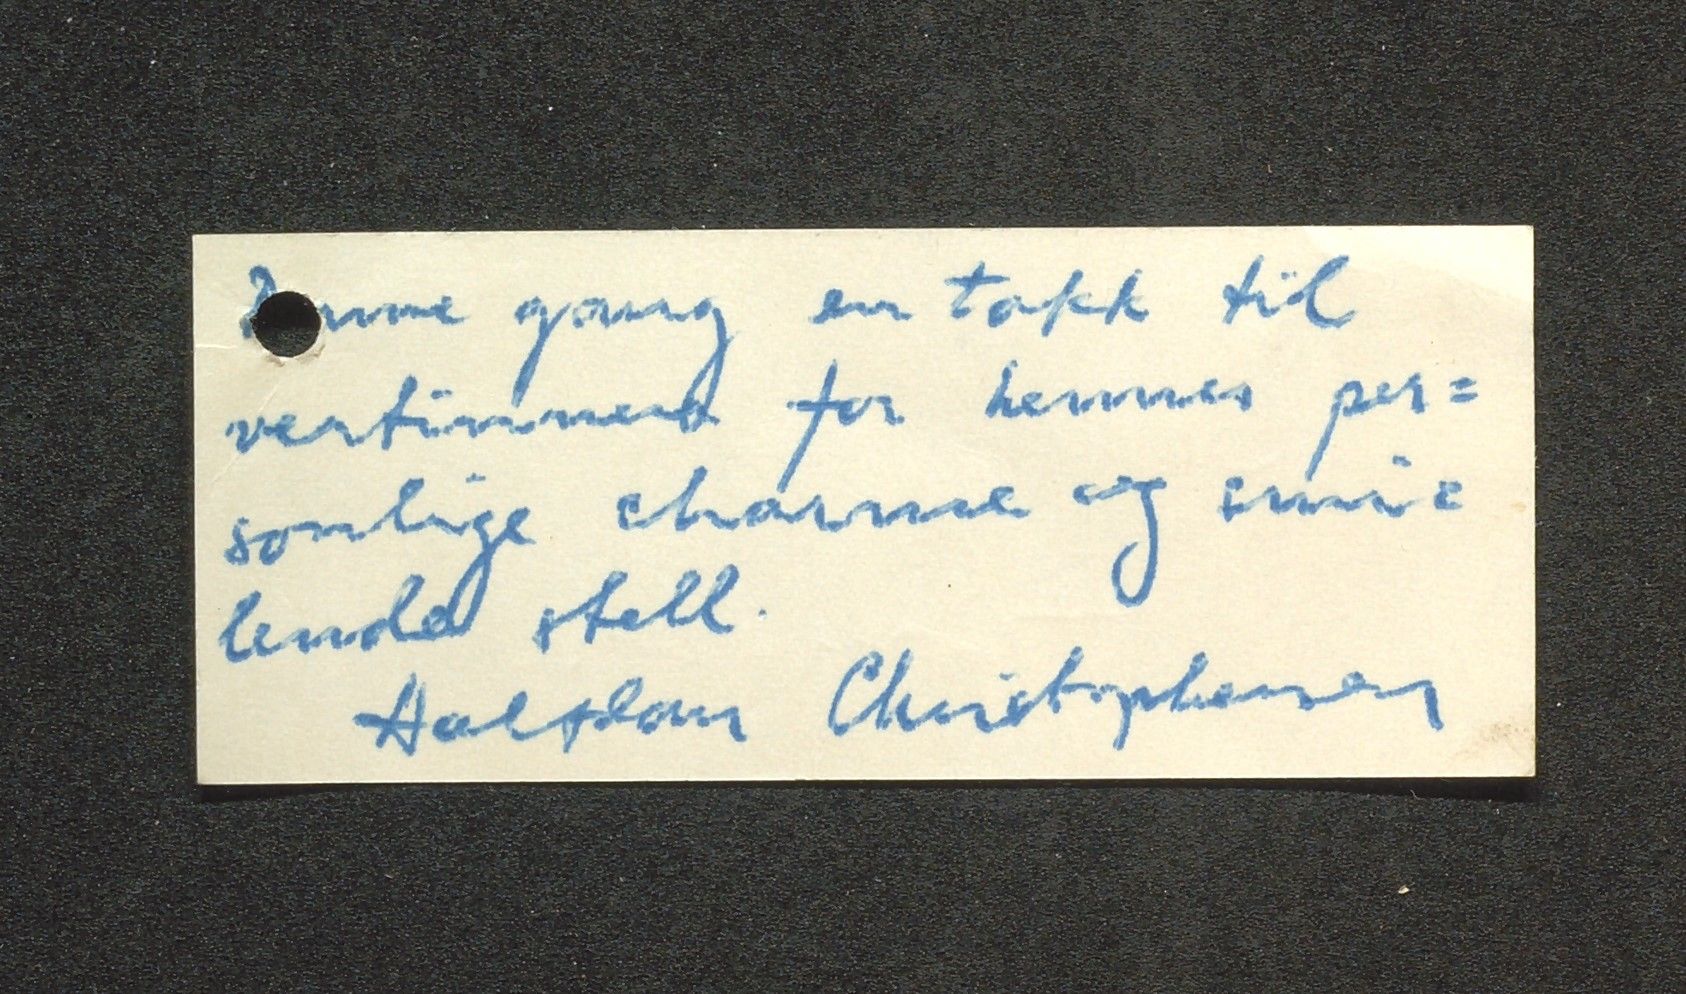 Denne gang en takk til
vertinnen for hennes per=
sonlige charme og smi=
lende stell.
Halfdan Christophersen